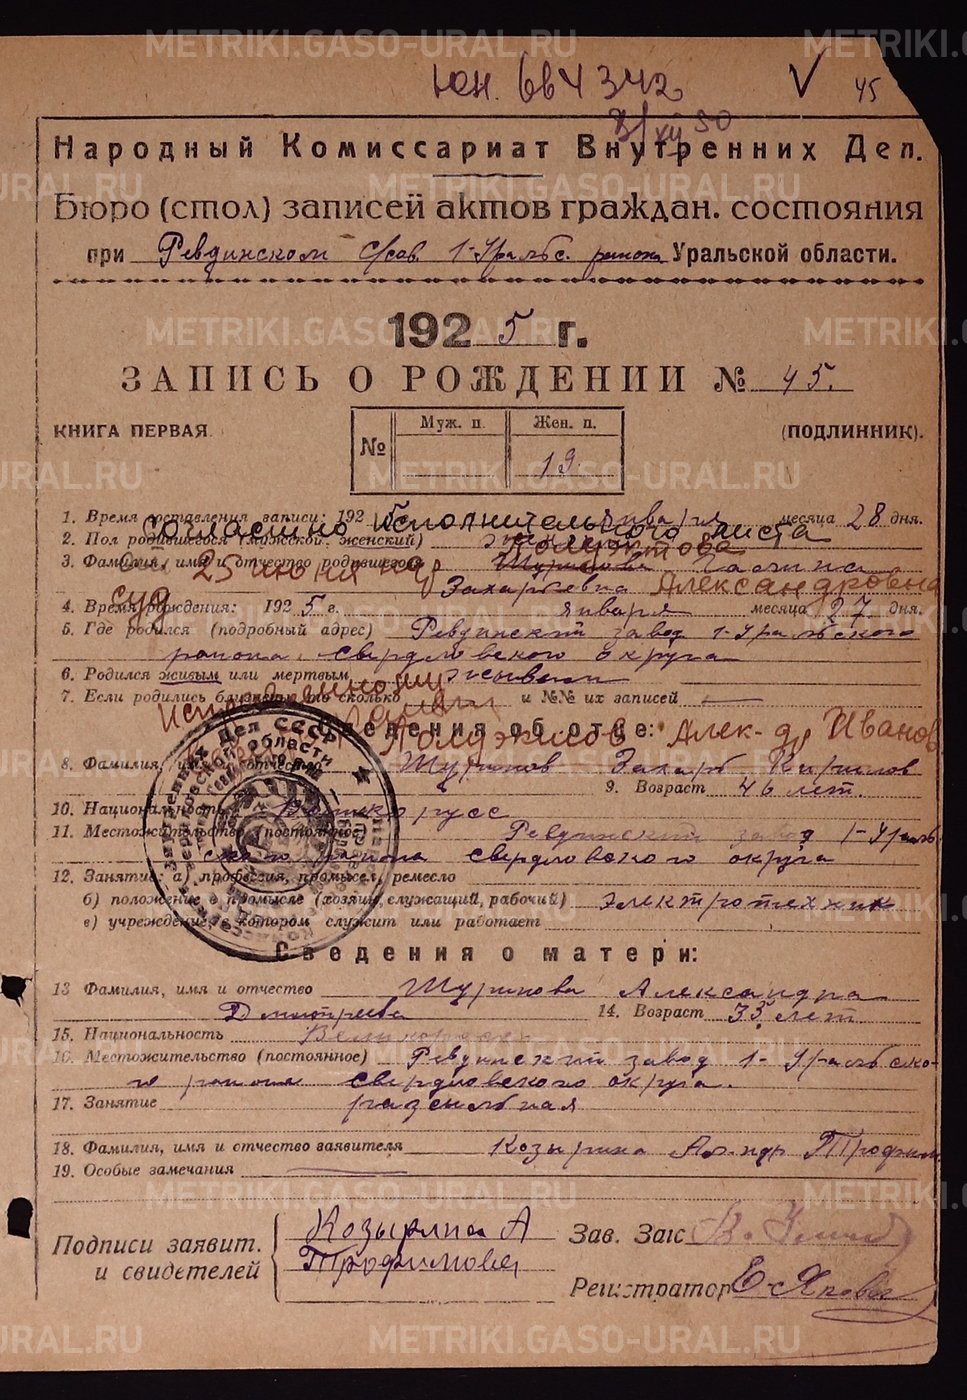 ЮН. 664342
V
45
Народный Комиссариат Внутренних Дел.
Бюро (стол) записей актов граждан. состояния
при Ревдинском с/сов. 1-Уральс. района Уральской области.
1925 г.
ЗАПИСЬ О РОЖДЕНИИ № 45.
КНИГА ПЕРВАЯ.
(ПОДЛИННИК).
№ Муж. п. Жен. п.
19.
1. Время составления записи: 1925 января месяца 28 дня.
Согласно исполнительного листа
2. Пол родившегося (мужской, женский) женский
3. Фамилия, имя и отчество родившегося Галина
25 июня
Захарьевна Александровна
суд
4. Время рождения: 1925 г. января месяца 27 дня.
5. Где родился (подробный адрес) Ревдинский завод 1-Уральского
района Свердловского округа
6. Родился живым или мертвым живым
7. Если родились близнецы, то сколько и №№ их записей —
Сведения об отце:
Алек-др Иванов
8. Фамилия, имя и отчество Журинов Захарь Кирилов
9. Возраст 46 лет.
10. Национальность Великорусс
11. Местожительство (постоянное) Ревдинский завод 1-Ураль
ского района Свердловского округа
12. Занятие: а) профессия, промысел, ремесло
б) положение в промысле (хозяин, служащий, рабочий) электротехник
в) учреждение, в котором служит или работает
Сведения о матери:
13 Фамилия, имя и отчество Журинова Александра
Дмитриева 14. Возраст 33 лет
15. Национальность
16. Местожительство (постоянное) Ревдинский завод 1-Уральско-
го района Свердловского округа.
17. Занятие
18. Фамилия, имя и отчество заявителя Козырина Ал-ндр Трофим
19. Особые замечания
Подписи заявит.
и свидетелей
Козырина А
Трофимовна
Зав. Загс
Регистратор
METRIKI.GASO-URAL.RU